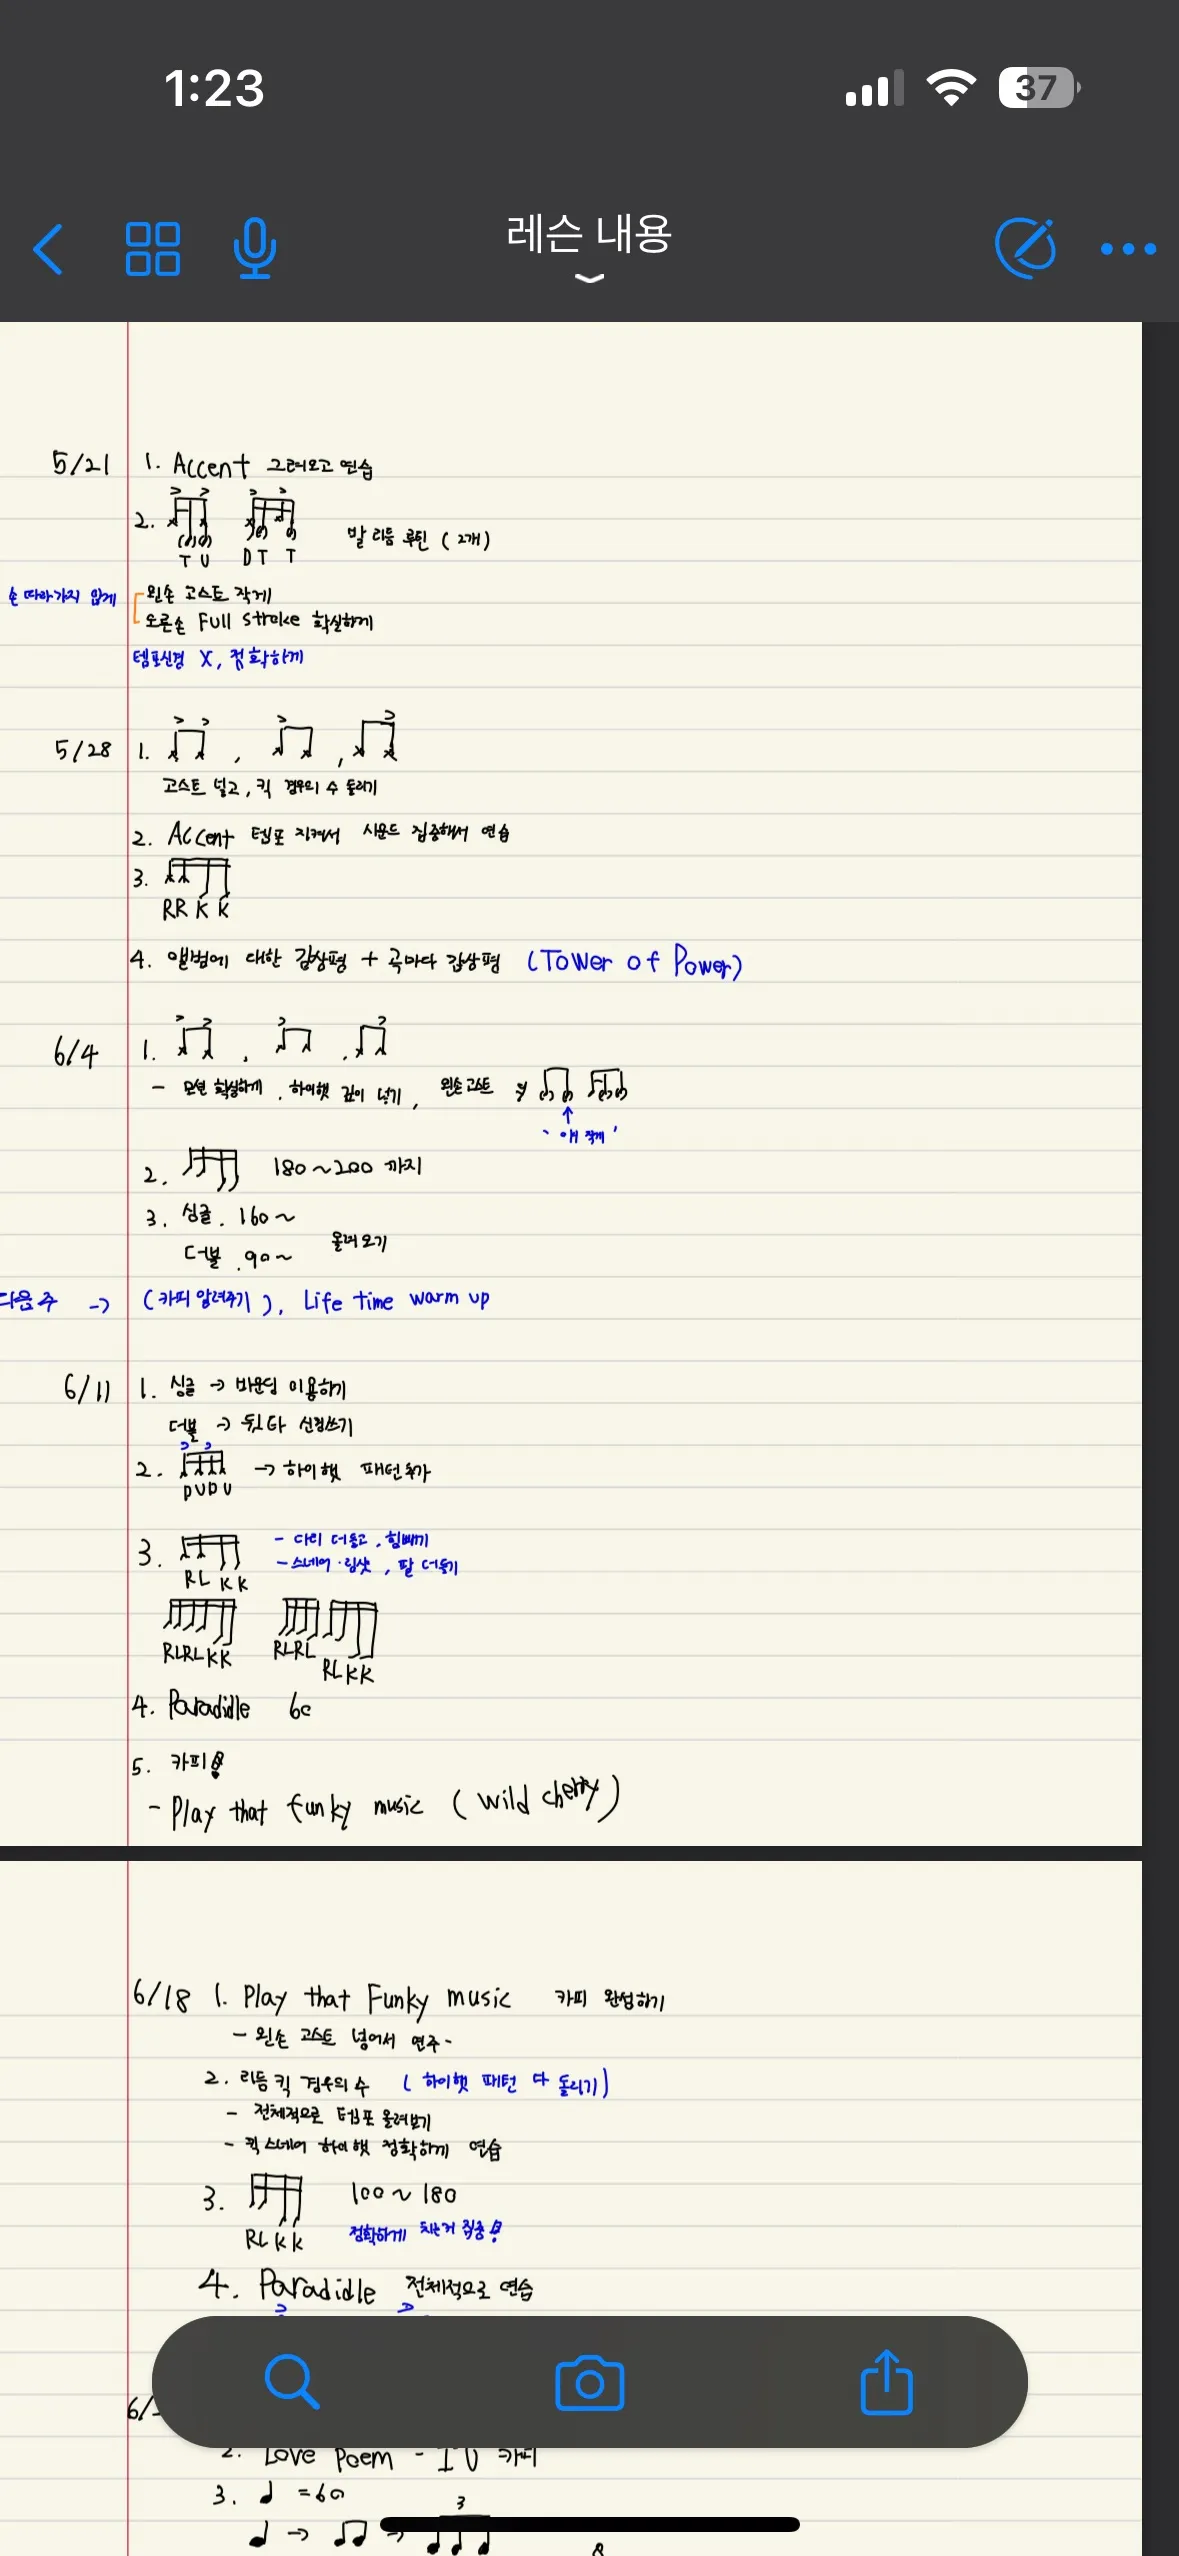 1:23
37
레슨 내용
5/21 1. Accent 그려오고 연습
2. 발 리듬 루틴 (2개)
T U D T T
손 따라가지 않게
왼손 고스트 작게
오른손 Full stroke 확실하게
템포신경 X, 정확하게
5/28 1. , ,
고스트 넣고, 킥 경우의 수 돌리기
2. Accent 템포 지켜서 사운드 집중해서 연습
3.
RR K K
4. 앨범에 대한 감상평 + 곡마다 감상평 (Tower of Power)
6/4 1. , ,
- 모션 확실하게, 하이햇 깊이 넣기, 왼손 고스트
↑
' 얘 작게 '
2. 180~200 까지
3. 싱글. 160~
더블. 90~ 올려오기
다음주 -> (카피 알려주기), Life time warm up
6/11 1. 싱글 -> 바운딩 이용하기
더블 -> 뒷타 신경쓰기
2. -> 하이햇 패턴 추가
DUDU
3. - 다리 더 들고, 힘빼기
- 스네어·림샷, 팔 더 들기
RL KK
RLRLKK RLRL
RLKK
4. Paradidle 60
5. 카피!
- Play that funky music (wild cherry)
6/18 1. Play that Funky music 카피 완성하기
- 왼손 고스트 넣어서 연주-
2. 리듬 킥 경우의 수 (하이햇 패턴 다 돌리기)
- 전체적으로 템포 올려보기
- 킥 스네어 하이햇 정확하게 연습
3. 100~180
RL KK 정확하게 치는거 집중!
4. Paradidle 전체적으로 연습
6/
2. Love poem - IU 카피
3. ♩ =60
♩ -> ♫ -> 3